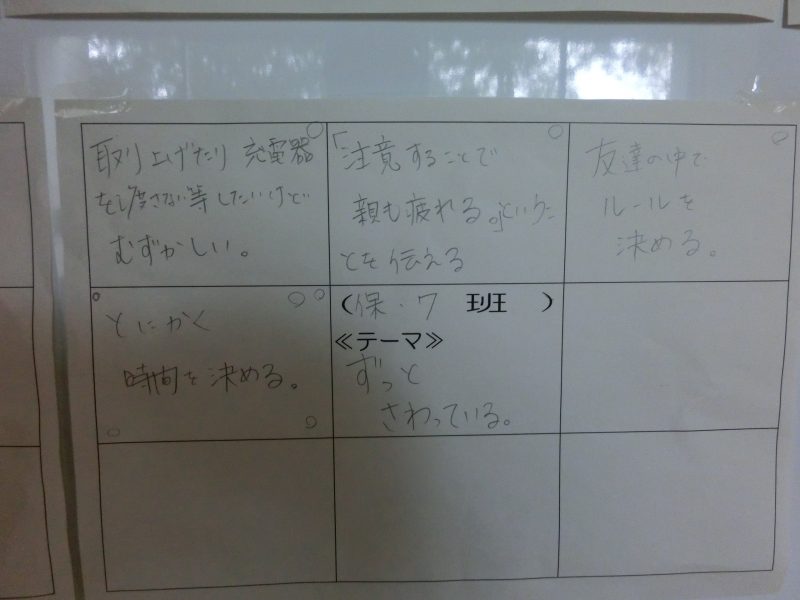 取り上げたり 充電器
を渡さない等したいけど
むずかしい。
「注意することで
親も疲れる。」というこ
とを伝える
友達の中で
ルールを
決める。
とにかく
時間を決める。
(保・7 班 )
≪テーマ≫
ずっと
さわっている。